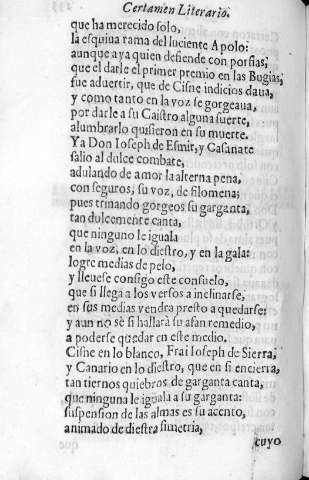 Certamen Literario.
que ha merecido solo,
la esquiua rama del luciente Apolo:
aunque aya quien defiende con porfias,
que el darle el primer premio en las Bugias,
fue aduertir, que de Cisne indicios daua,
y como tanto en la voz se gorgeaua,
por darle a su Caistro alguna suerte,
alumbrarlo quisieron en su muerte.
Ya Don Ioseph de Esmir, y Casanate
salio al dulce combate,
adulando de amor la alterna pena,
con seguros, su voz, de filomena;
pues trinando gorgeos su garganta,
tan dulcemente canta,
que ninguno le iguala
en la voz, en lo diestro, y en la gala:
logre medias de pelo,
y lleuese consigo este consuelo,
que si llega a los versos a inclinarse,
en sus medias vendra presto a quedarse:
y aun no sè si hallarà su afan remedio,
a poderse quedar en este medio.
Cisne en lo blanco, Frai Ioseph de Sierra,
y Canario en lo diestro, que en si encierra,
tan tiernos quiebros de garganta canta,
que ninguna le iguala a su garganta:
suspension de las almas es su acento,
animado de diestra simetria,
cuyo